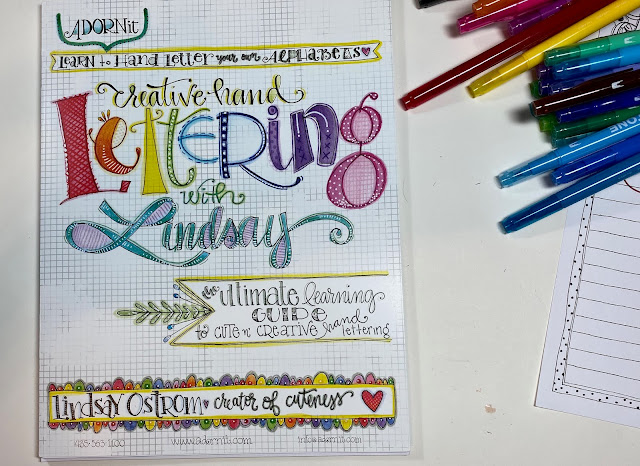 ADORNit
LEARN to HAND LETTER your own ALPHABETS
creative hand
LetteRing
with
Lindsay
the ultimate learning
GUIDE
to CUTE n' CREATIVE hand lettering
Lindsay Ostrom creator of cuteness
435·563·1100 www.adornit.com info@adornit.com